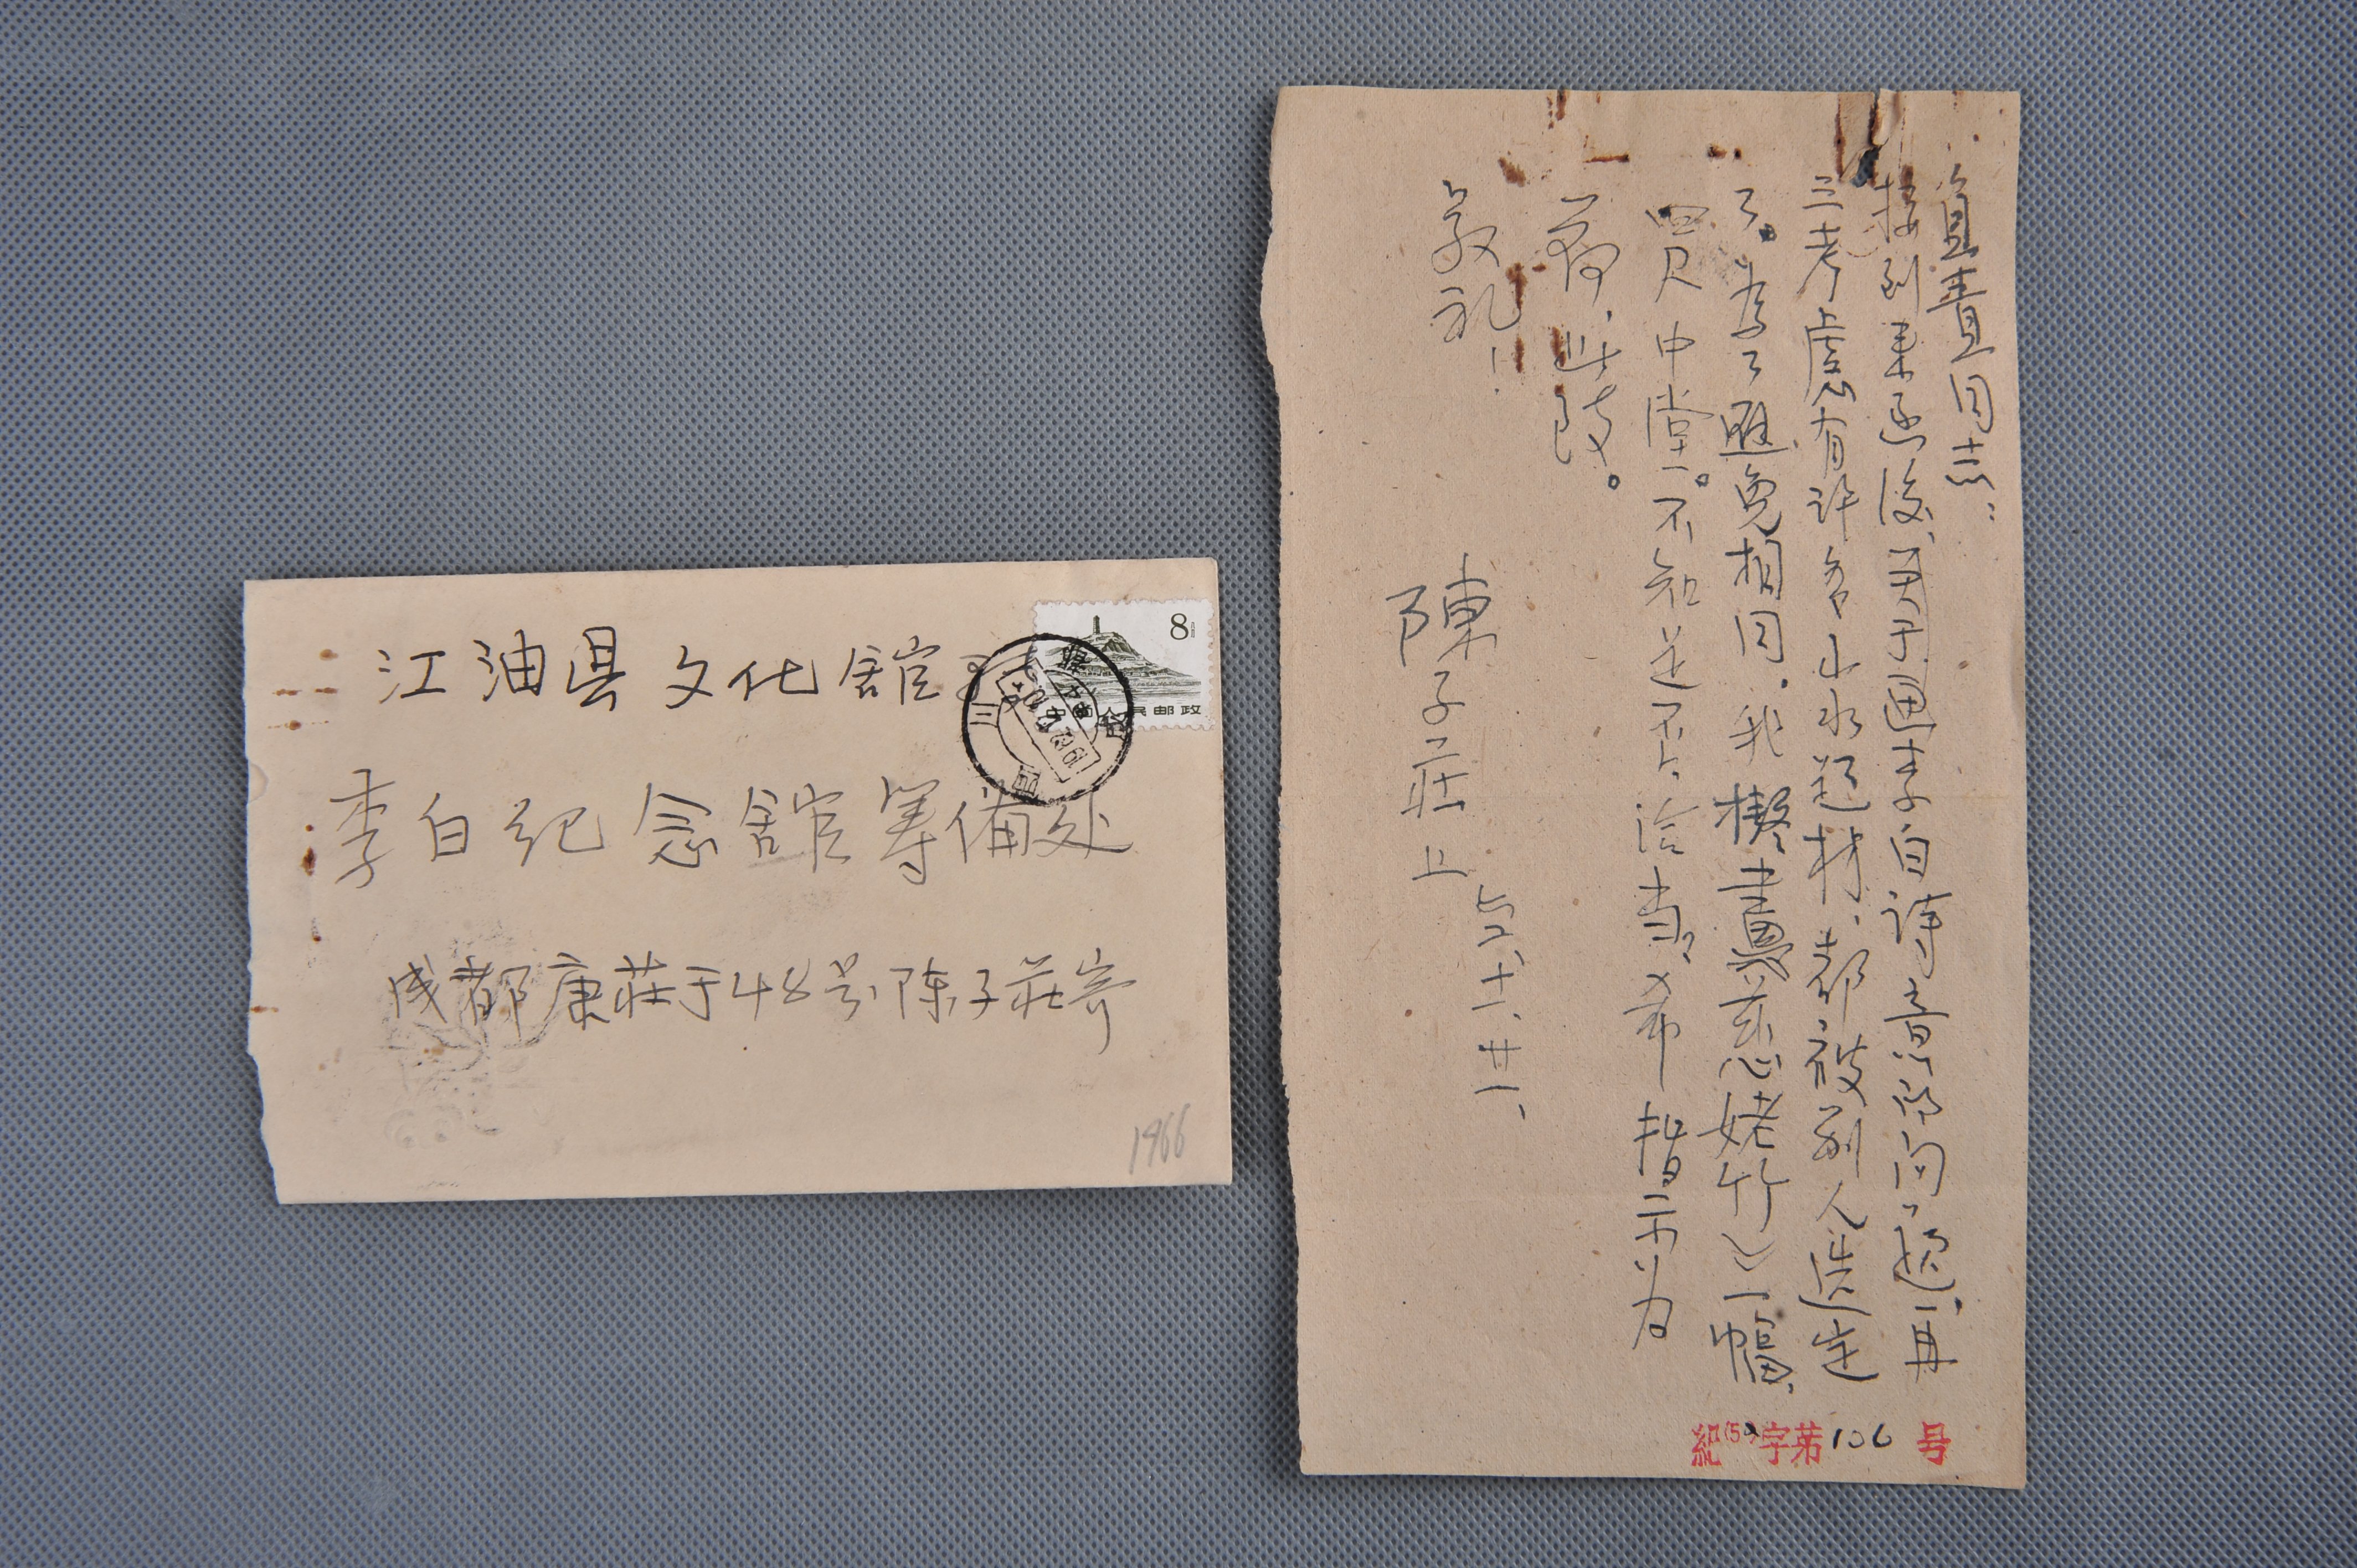 江油县文化舘
李白纪念舘筹備处
成都康莊于48号陈子莊寄
8
中国人民邮政
1966
同志：
接到来函后，用于画李白诗意的问题，再
三考虑有许多山水题材，都被别人选定
了。为了避免相同，我擬畫慈姥竹》一幅，
四尺中堂。不知是否洽当，希指示为
荷，此致。
敬礼！
陳子莊上
紀(5)字第106号